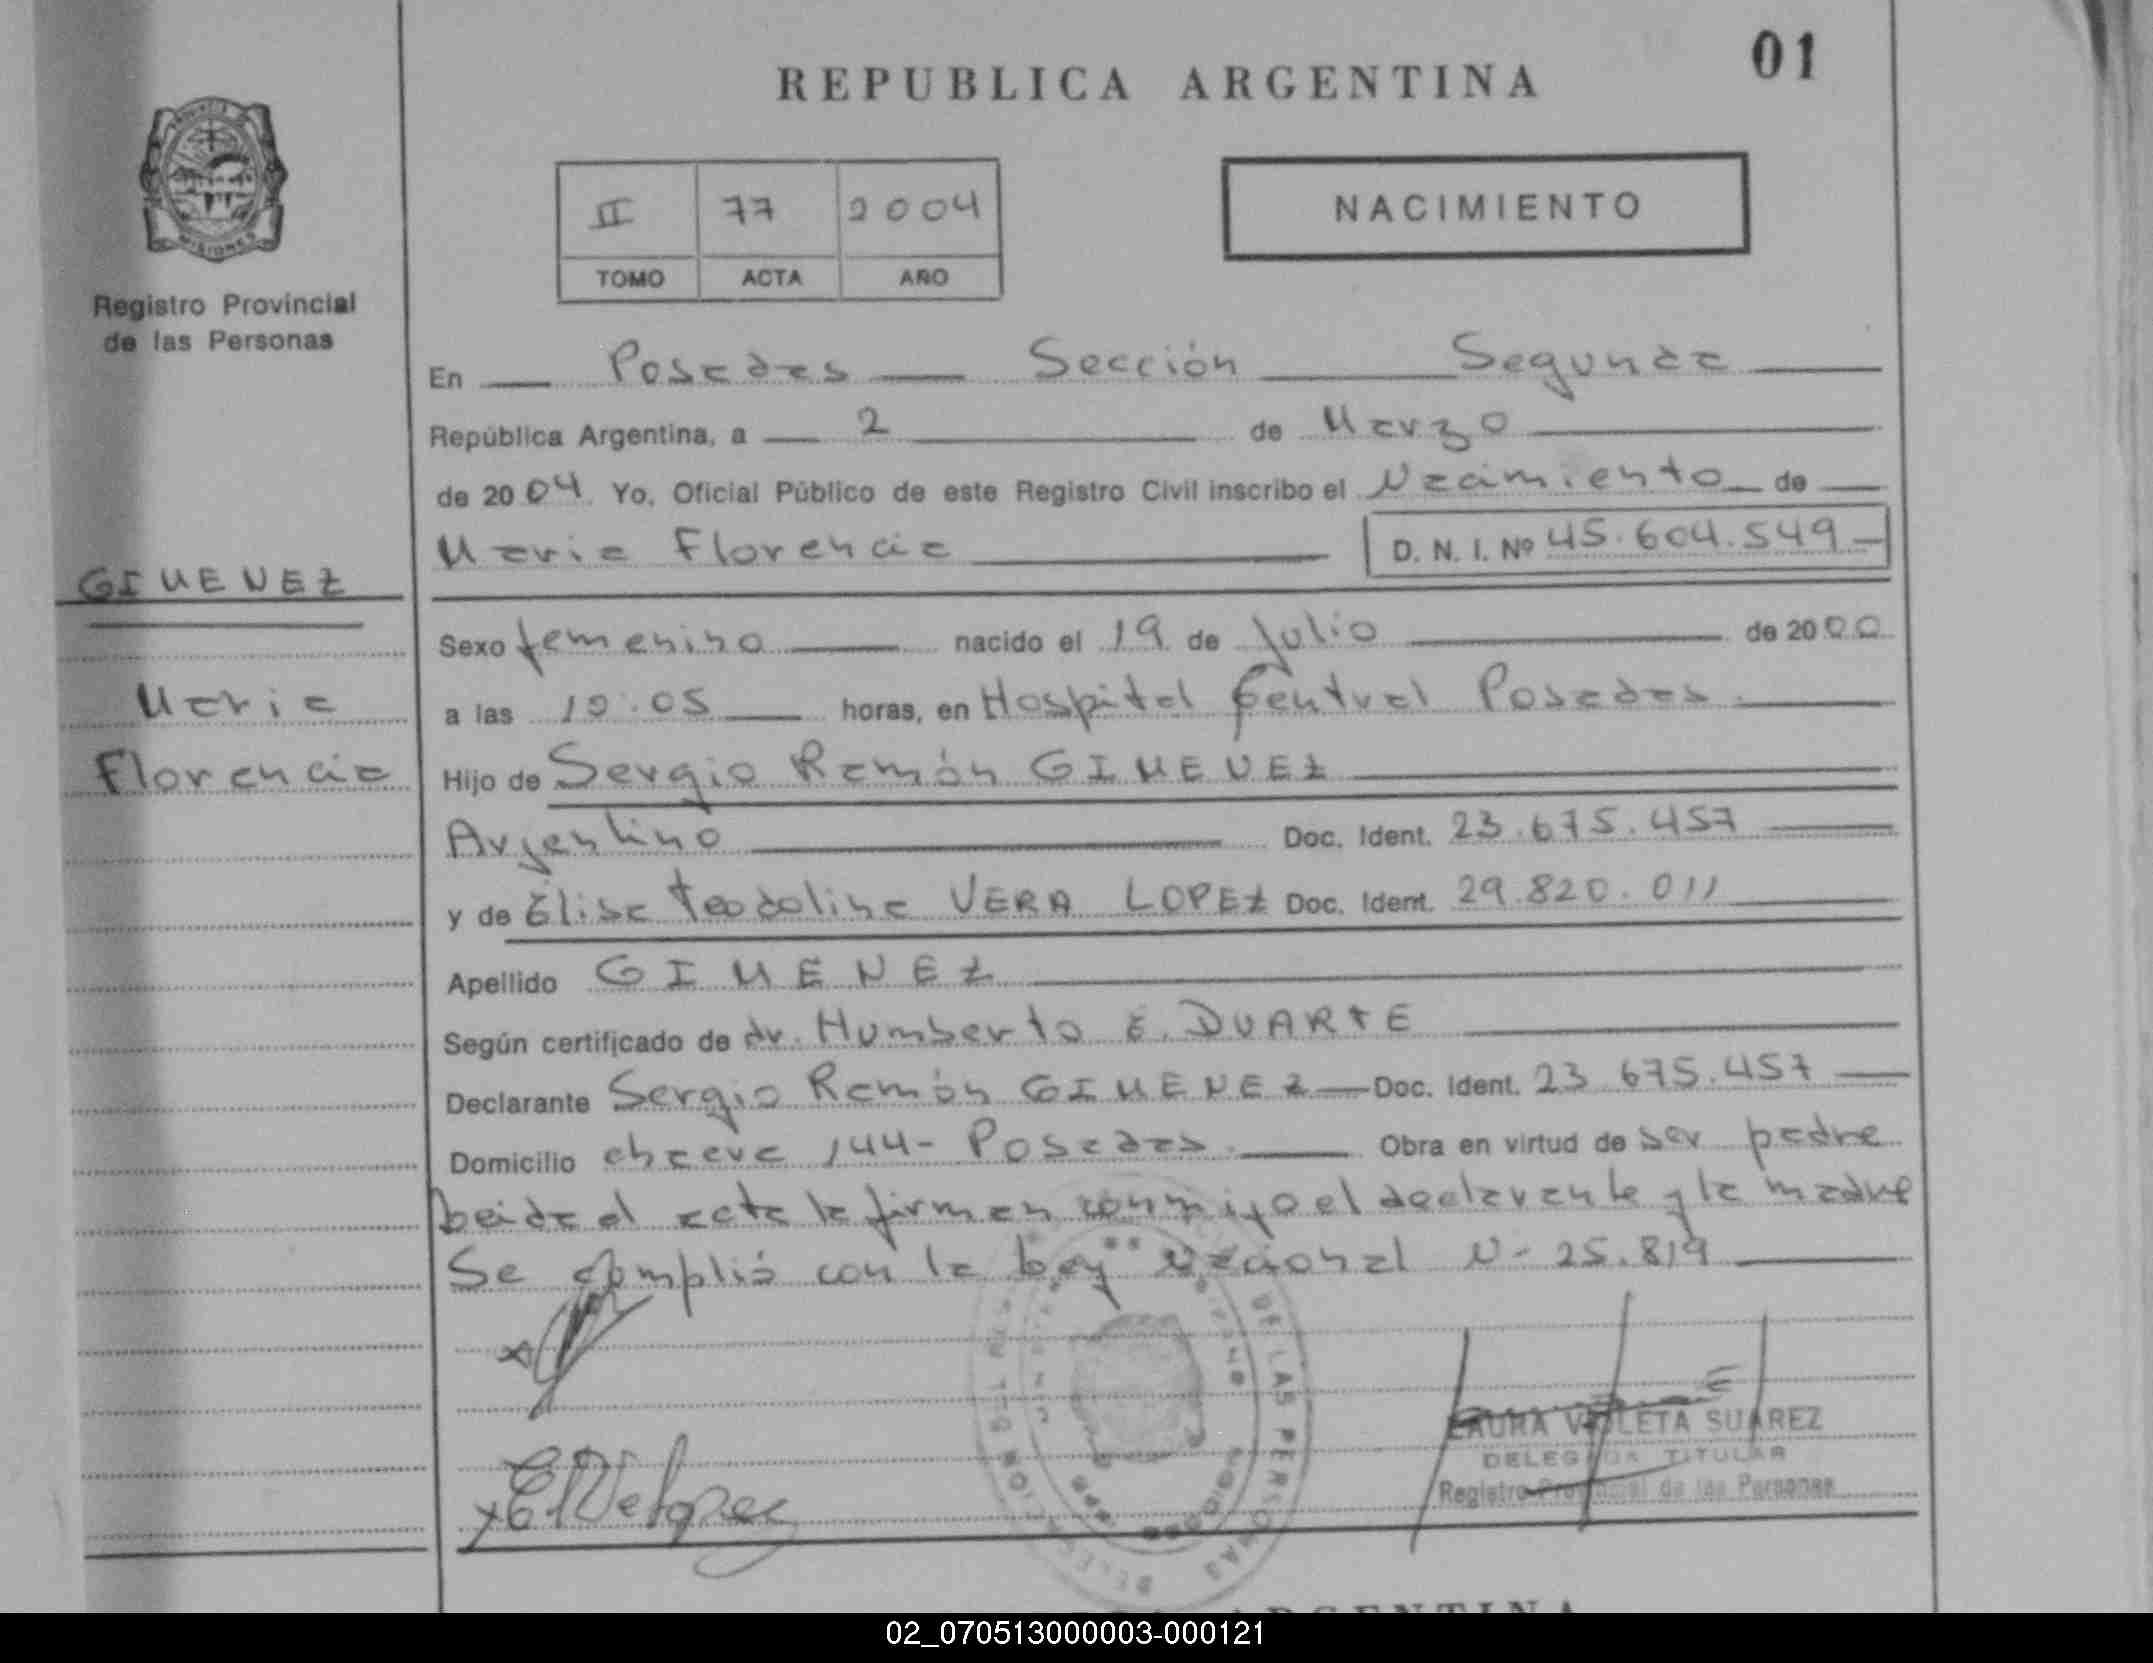 01
REPUBLICA ARGENTINA
II 77 2004
TOMO ACTA AÑO
NACIMIENTO
MISIONES
Registro Provincial
de las Personas
En Posadas Sección Segunda
República Argentina, a 2 de Marzo
de 2004 Yo, Oficial Público de este Registro Civil inscribo el Nacimiento de
Maria Florencia D. N. I. Nº 45.604.549
GIMENEZ
Maria
Florencia
Sexo femenino nacido el 19 de Julio de 2000
a las 10:05 horas, en Hospital Central Posadas
Hijo de Sergio Ramón GIMENEZ
Argentino Doc. Ident. 23.675.457
y de Elisa Teodolina VERA LOPEZ Doc. Ident. 29.820.011
Apellido GIMENEZ
Según certificado de dr. Humberto E. DUARTE
Declarante Sergio Ramón GIMENEZ Doc. Ident. 23 675.457
Domicilio 144- Posadas. Obra en virtud de ser padre
Leida el acta la firman conmigo el declarante y la madre
Se cumplió con la Ley Nacional N- 25.819
DE LAS PERSONAS
LAURA VIOLETA SUAREZ
DELEGADA TITULAR
Registro Provincial de las Personas
ARGENTINA
02_070513000003-000121